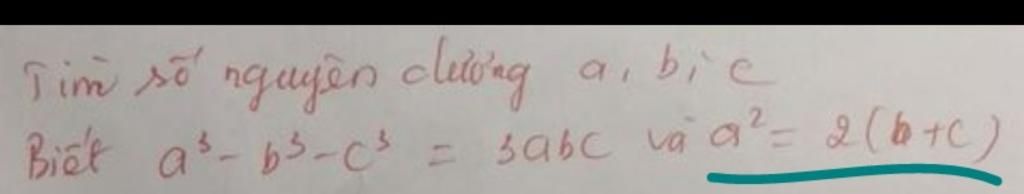 Tìm số nguyên dương a, b, c
Biết a³ - b³ - c³ = 3abc và a² = 2(b+c)